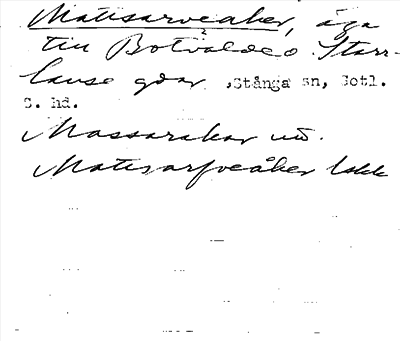 Matisarveåker, äga
till Botvalde o. Storr-
lause gdar, Stånga sn, Gotl.
S. hd.
Massaråkar uö.
Matisarfveåker Lskk